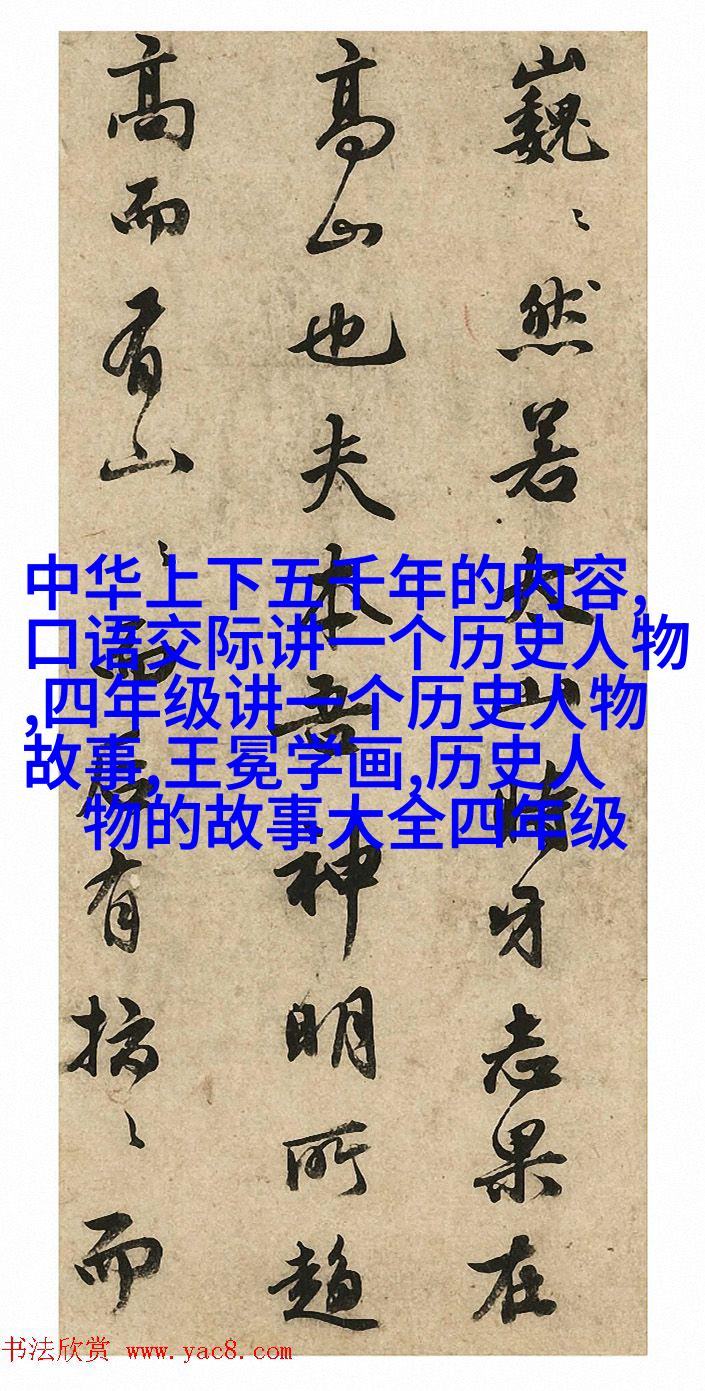 巍〻然若太山時牙志果在
高山也夫本吾神明所趨
高而有山〻而后有〻而
中华上下五千年的内容,
口语交际讲一个历史人物
,四年级讲一个历史人物
故事,王冕学画,历史人
物的故事大全四年级
书法欣赏 www.yac8.com